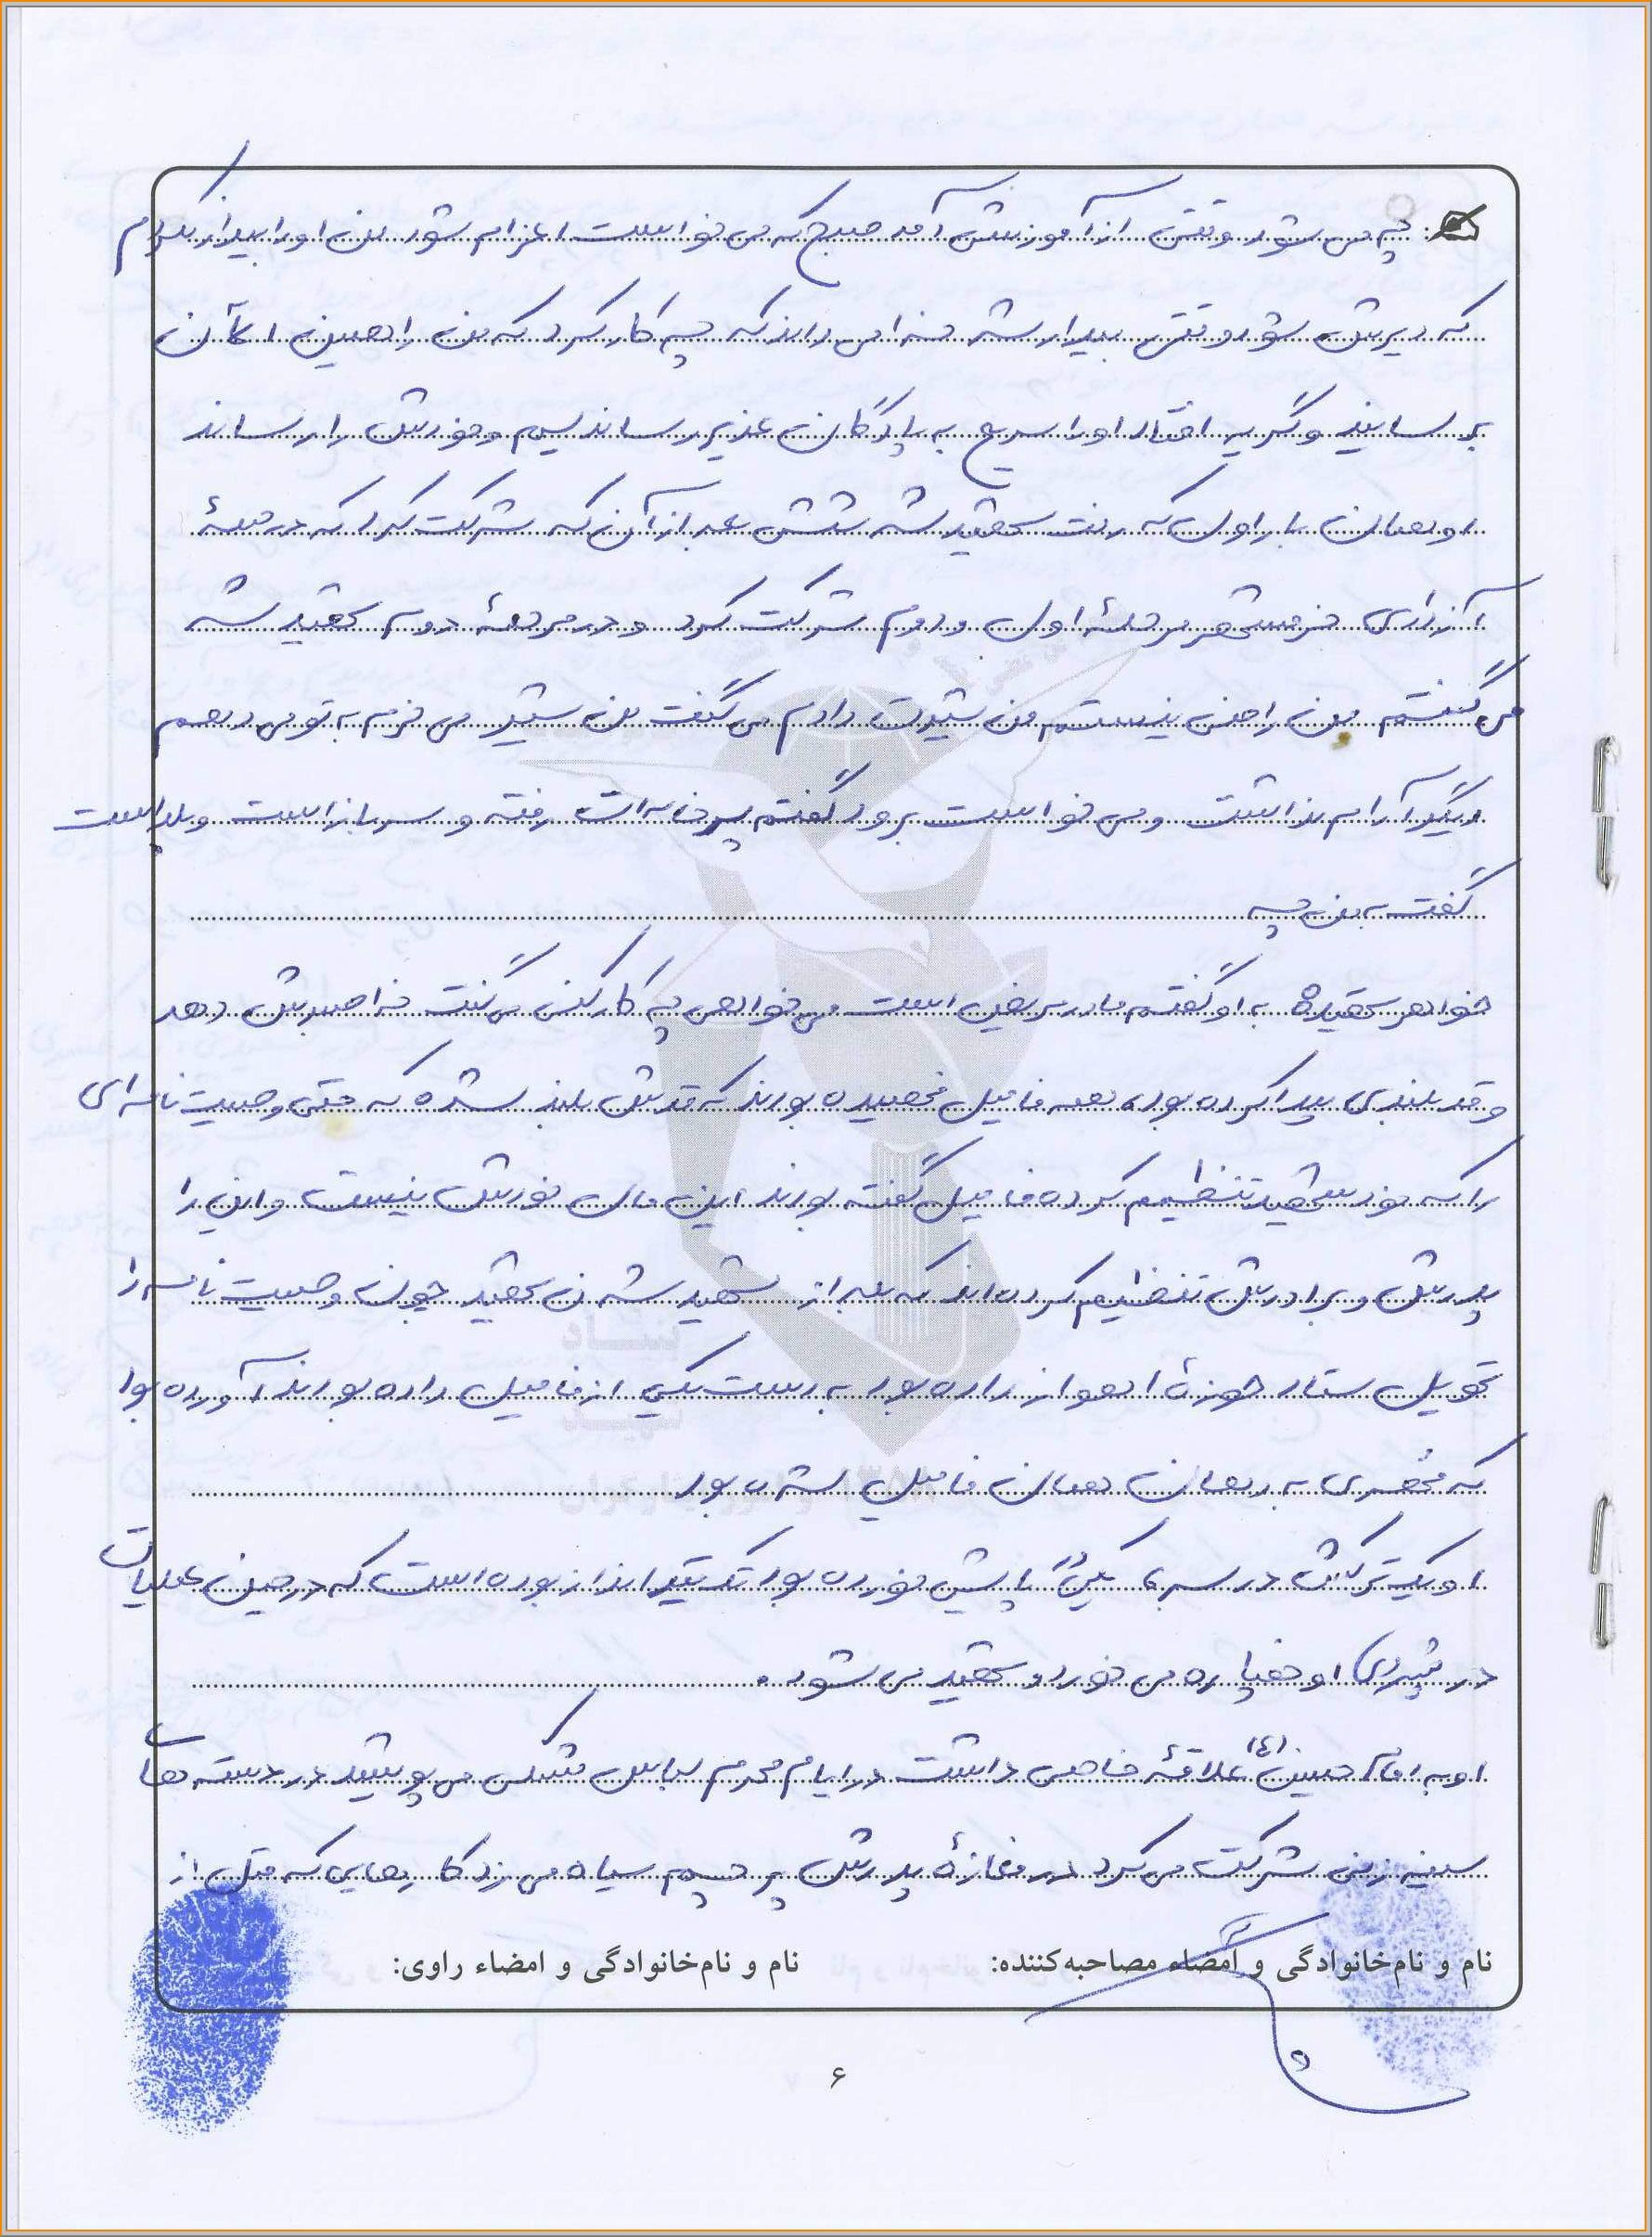 چه می شود وقتی از آموزشی آمد صبح که می خواست اعزام شود من او را بیدار نکردم
که دیرش شود وقتی بیدار شد خدا می داند که چه کار کرد که من را همین الآن
برسانید و گریه افتاد او را سریع به پادگان غدیر رساندیم و خودش را رساند
او همان بار اول که رفت شهید شد شش بعد از آن که شرکت کرد که در حمله
آزادی خرمشهر مرحلهٔ اول و دوم شرکت کرد و در مرحلهٔ دوم شهید شد
می گفتم من راضی نیستم من شیرت دادم می گفت من شیر می خرم به تو می دهم
دیگر آرام نداشت و می خواست برود گفتم پسر خاله ات رفته و سرباز است و بلد است
گفت به من چه
خواهر شهید به او گفتم مادر مریض است می خواهی چه کار کنی می گفت خدا صبرش دهد
و قد بلندی پیدا کرده بود، همه فامیل فهمیده بودند که قدش بلند شده که حتی وصیت نامه ای
را که خود شهید تنظیم کرده فامیل گفته بودند این مال خودش نیست و این را
پدرش و برادرش تنظیم کرده اند که بعد از شهید شدن شهید چون وصیت نامه را
تحویل ستاد حوزهٔ اهواز داده بود به دست یکی از فامیل داده بودند آورده بود
که مختصری به رهمان همان فامیل شده بود
او یک ترکش در سر، یکی پایش خورده بود تک تیرانداز بوده است که در حین عملیات
در تیررس او خمپاره می خورد و شهید می شود.
او به امام حسین (ع) علاقهٔ خاصی داشت در ایام محرم لباس مشکی می پوشید در دسته های
سینه زنی شرکت می کرد در مغازهٔ پدرش پرچم سیاه می زد کارهایی که قبل از
نام و نام‌خانوادگی و امضاء مصاحبه‌کننده: نام و نام‌خانوادگی و امضاء راوی:
۶